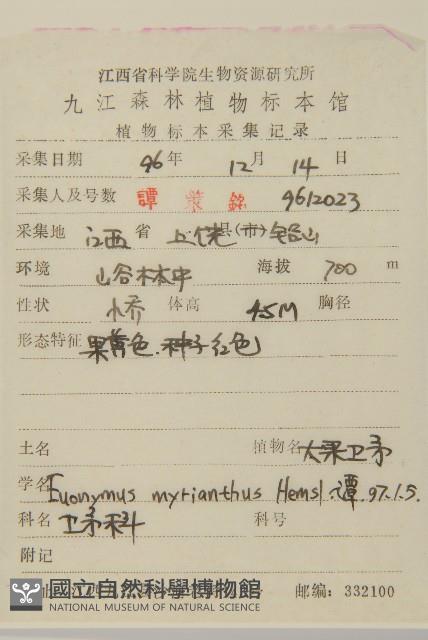 江西省科学院生物资源研究所
九江森林植物标本馆
植物标本采集记录
采集日期 96年 12月 14日
采集人及号数 譚策銘 9612023
采集地 江西省 上饶县(市) 铅山
环境 山谷林中 海拔 700 m
性状 小乔 体高 4.5M 胸径
形态特征 果黄色.种子红色
土名 植物名 大果卫矛
学名 Euonymus myrianthus Hemsl. 譚.97.1.5.
科名 卫矛科 科号
附记
國立自然科學博物館 邮编: 332100
NATIONAL MUSEUM OF NATURAL SCIENCE